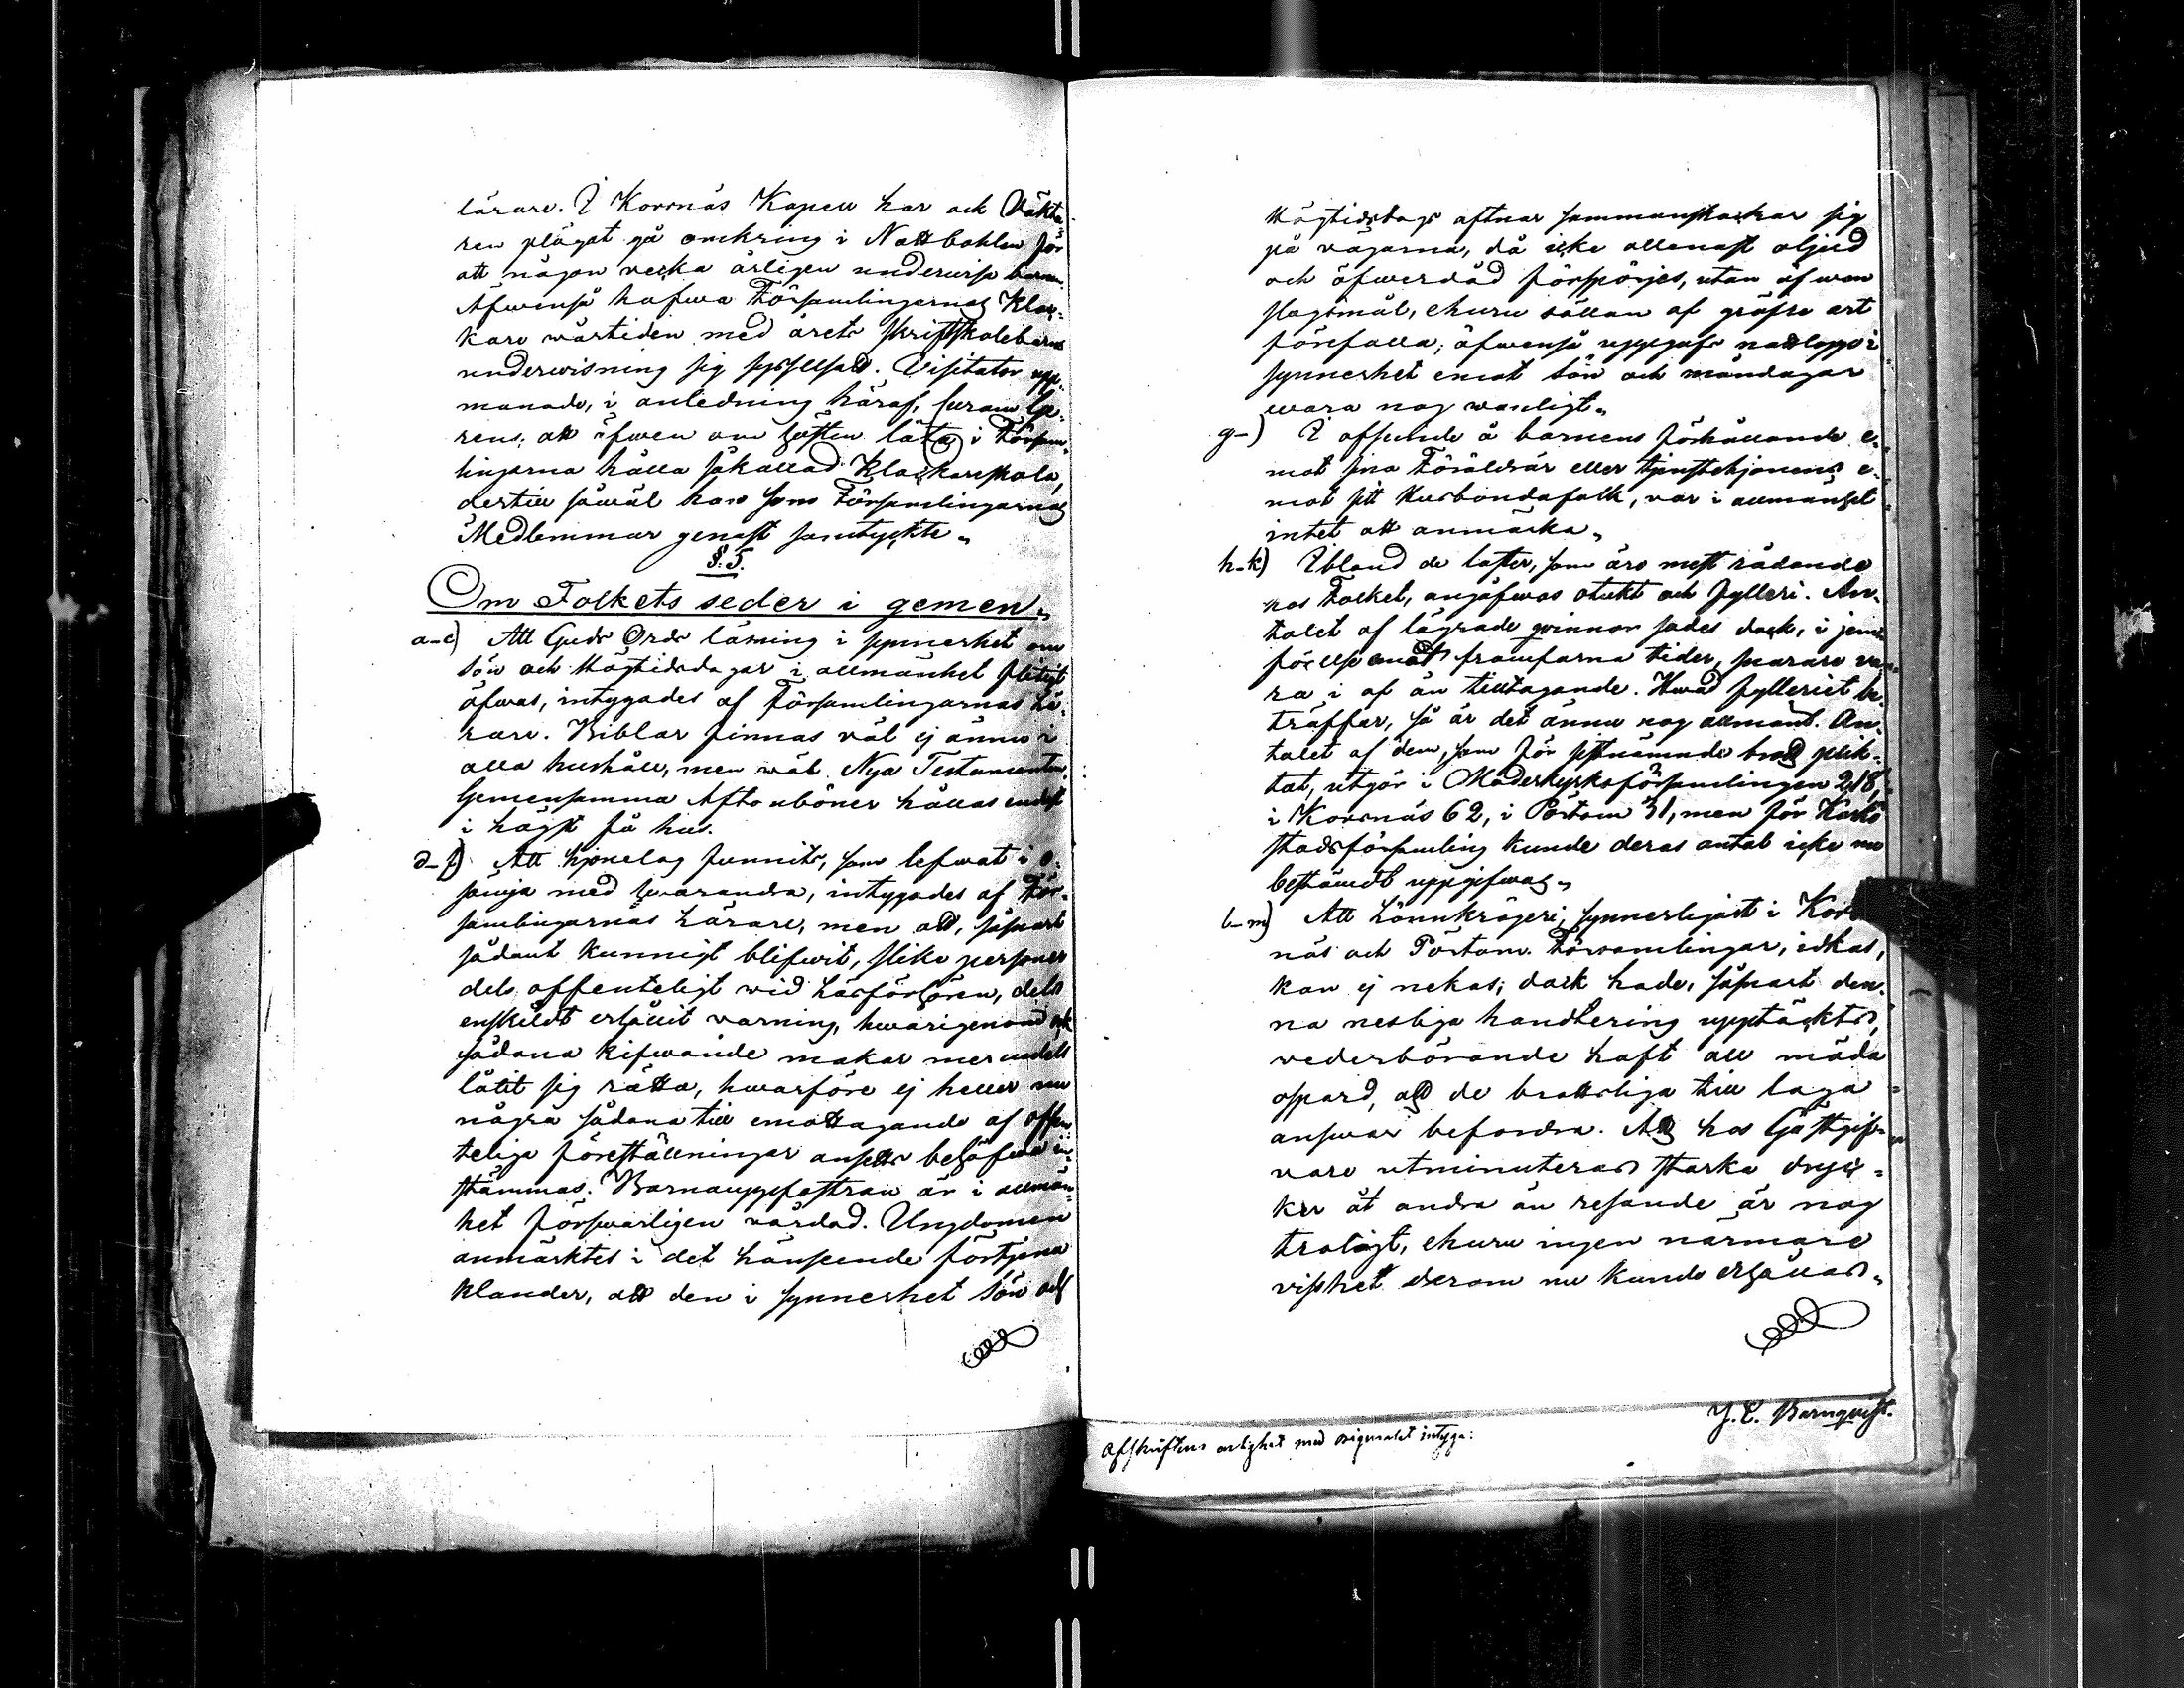 lärare. I Korsnäs Kapell har ock Väkta
ren plägat gå omkring i Rottbohlen för
att någon vecka årligen underwisa barnen.
Äfwenså hafwa Församlingarnas Kloc-
kare wårtiden med årets skriftskolebarns
underwisning sig sysselsatt. Visitator upp-
manade, i anledning häraf,
rens, att äfwen om hösten låta i Försam-
lingarna hålla såkallad Klockareskola,
dertill såwäl han som Församlingarnas
Medlemmar genast samtyckte.
§. 5.
Om Folkets seder i gemen.
a-c) Att Guds Ords läsning i synnerhet om
Sön och Högtidsdagar i allmänhet flitigt
öfwas, intygades af Församlingarnas Lä-
rare. Biblar finnas väl ej ännu i
alla hushåll, men wäl Nya Testamenten.
Gemensamma Aftonböner hållas endast
i högst få hus.
d-f) Att hjonelag funnits, som lefwat i o-
sämja med hwarandra, intygades af För-
samlingarnas Lärare, men att, såsnart
sådant kunnigt blifwit, slike personer
dels offenteligt wid Läsförhören, dels
enskildt erhållit varning, hwarigenom ock
sådana kifwande makar merendels
låtit sig rätta, hwarföre ej heller nu
några sådana till emottagande af offen-
teliga föreställningar ansetts behöfwa in-
stämmas. Barnauppfostran är i allmän-
het försvarligen vårdad. Ungdomen
anmärktes i det hänseende förtjena
klander, att den i synnerhet Sön och
Högtidsdags aftnar sammanskockar sig
på vägarna, då icke allenast oljud
och öfwerdåd förspörjes, utan äfwen
slagsmål, ehuru sällan af gröfre art
förefalla; äfwenså uppgafs nattlopp i
synnerhet emot Sön och måndagar
wara nog wanligt.
g-) I afseende å barnens förhållande e-
mot sina Föräldrar eller tjenstehjonens e-
mot sitt Husbondafolk, var i allmänhet
intet att anmärka.
h-k) Ibland de laster, som äro mest rådande
hos Folket, angåfwos otukt och fylleri. An-
talet af lägrade qvinnor sades dock, i jem-
förelse emot framfarna tider, snarare va-
ra i af än tilltagande. Hwad fylleriet be-
träffar, så är det ännu nog allmänt. An-
talet af dem, som för sistnämnde brott plik-
tat, utgör i Moderkyrkoförsamlingen 218,
i Korsnäs 62, i Pörtom 31, men för Kaskö
stadsförsamling kunde deras antal icke nu
bestämdt uppgifwas.
l-m) Att Lönnkrögeri, synnerligast i Kors
näs och Pörtom Församlingar, idkas,
kan ej nekas; dock hade, såsnart den-
na nesliga handtering upptäckts,
vederbörande haft all möda
ospard, att de brottsliga till laga
answar befordra. Att hos Gästgif-
vare utminuteras starka dryc-
ker åt andra än resande är nog
troligt, ehuru ingen närmare
visshet derom nu kunde erhållas.
Afskriftens riktighet med originalet intyga:
J. E. Barnqvist.